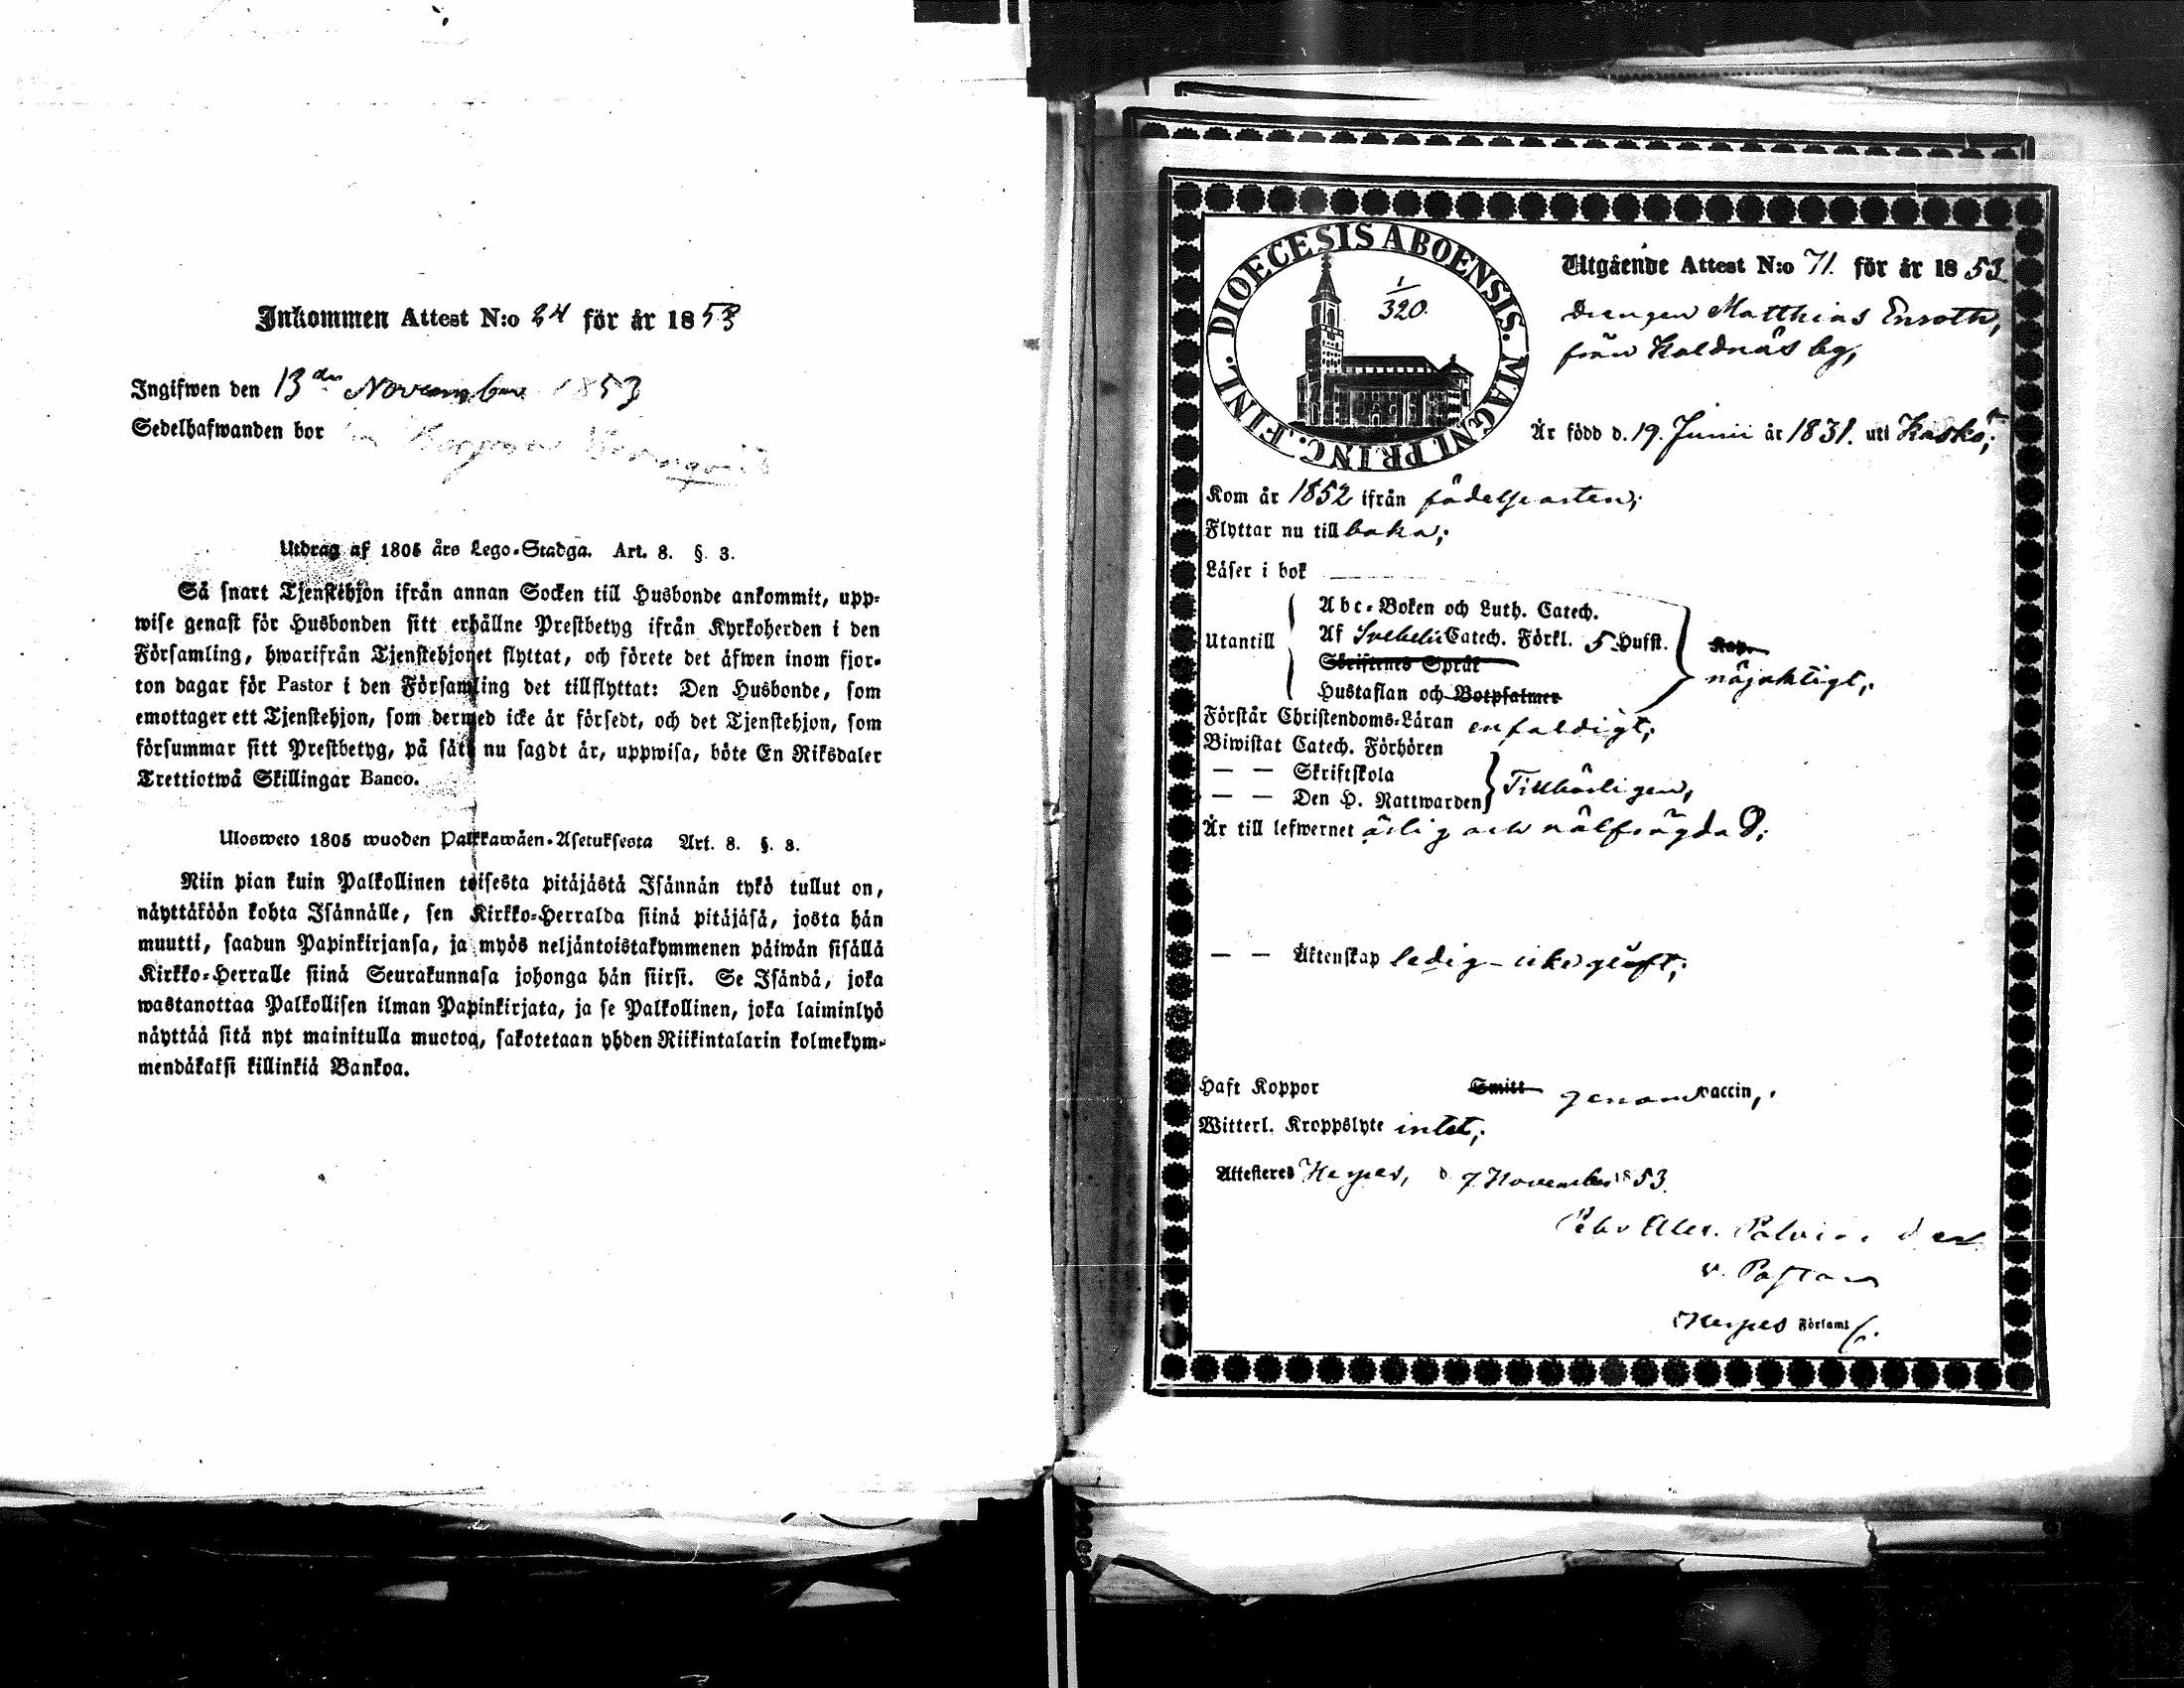 Inkommen Attest N:o 24 för år 1853
Ingifwen den 13de November 1853
Sedelhafwanden bor
Utdrag af 1805 års Lego-Stadga. Art. 8. §. 3.
Så snart Tjenstehjon ifrån annan Socken till Husbonde ankommit, upp-
wise genast för Husbonden sitt erhållne Prestbetyg ifrån Kyrkoherden i den
Församling, hwarifrån Tjenstehjonet flyttat, och förete det äfwen inom fjor-
ton dagar för Pastor i den Församling det tillflyttat: Den Husbonde, som
emottager ett Tjenstehjon, som dermed icke är försedt, och det Tjenstehjon, som
försummar sitt Prestbetyg, på sätt nu sagdt är, uppwisa, böte En Riksdaler
Trettiotwå Skillingar Banco.
Ulosweto 1805 wuoden Palkkawäen-Asetuksesta Art. 8. §. 3.
Niin pian kuin Palkollinen toisesta pitäjästä Isännän tykö tullut on,
näyttäköön kohta Isännälle, sen Kirkko-Herralda siinä pitäjäsä, josta hän
muutti, saadun Papinkirjansa, ja myös neljäntoistakymmenen päiwän sisällä
Kirkko-Herralle siinä Seurakunnasa johonga hän siirsi. Se Isändä, joka
wastanottaa Palkollisen ilman Papinkirjata, ja se Palkollinen, joka laiminlyö
näyttää sitä nyt mainitulla muotoa, sakotetaan yhden Riikintalarin kolmekym-
mendäkaksi killinkiä Bankoa.
DIOECESIS ABOENSIS. MAGNI PRINC. FINL.
1/320.
Utgående Attest N:o 71. för år 1853
Drengen Matthias Enroth,
från Kaldnäs by,
Är född d. 19. Junii år 1831. uti Kaskö;
Kom år 1852 ifrån födelseorten;
Flyttar nu till baka;
Läser i bok
Utantill
Abc-Boken och Luth. Catech.
Af Svebelii Catech. Förkl. 5 Hufst.
Skriftenes Språk
Hustaflan och Botpsalmer
nöjaktigt;
Förstår Christendoms-Läran enfaldigt;
Biwistat Catech. Förhören
— — Skriftskola
— — Den H. Nattwarden
Tillbörligen;
Är till lefwernet ärlig och wälfrägdad;
— — Äktenskap ledig – icke gift;
Haft Koppor Smitt genom vaccin,
Witterl. Kroppslyte intet;
Attesteres Nerpes, d. 7 November 1853.
v. Pastor
Nerpes Församl.